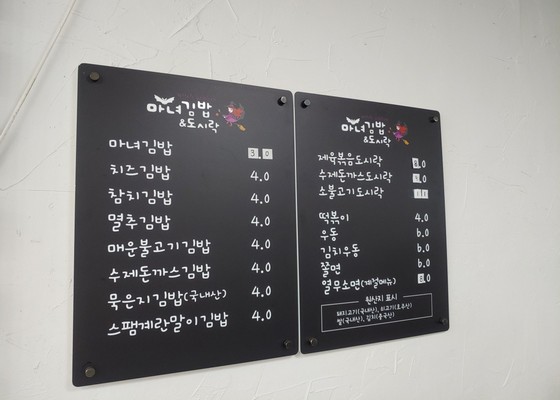 마녀김밥
&도시락
마녀김밥 3.0
치즈김밥 4.0
참치김밥 4.0
멸추김밥 4.0
매운불고기김밥 4.0
수제돈까스김밥 4.0
묵은지김밥(국내산) 4.0
스팸계란말이김밥 4.0
마녀김밥
&도시락
제육볶음도시락 .0
수제돈까스도시락 .0
소불고기도시락
떡볶이 4.0
우동 6.0
김치우동 6.0
쫄면 6.0
열무소면(계절메뉴) .0
원산지 표시
돼지고기(국내산), 쇠고기(호주산)
쌀(국내산), 김치(중국산)